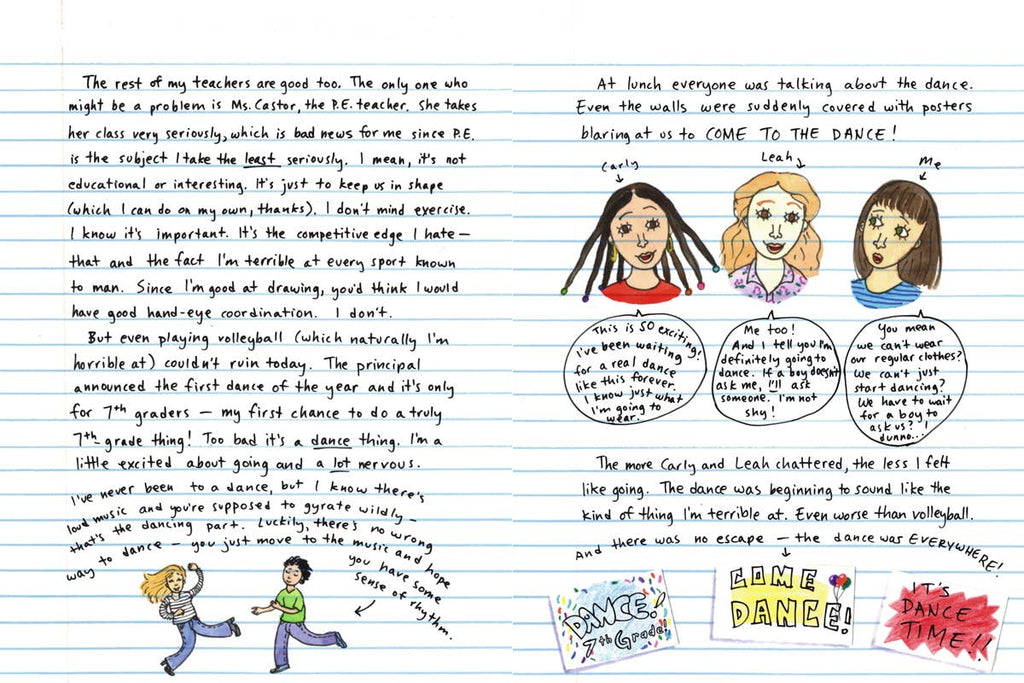 The rest of my teachers are good too. The only one who
might be a problem is Ms. Castor, the P.E. teacher. She takes
her class very seriously, which is bad news for me since P.E.
is the subject I take the least seriously. I mean, it's not
educational or interesting. It's just to keep us in shape
(which I can do on my own, thanks). I don't mind exercise.
I know it's important. It's the competitive edge I hate –
that and the fact I'm terrible at every sport known
to man. Since I'm good at drawing, you'd think I would
have good hand-eye coordination. I don't.
But even playing volleyball (which naturally I'm
horrible at) couldn't ruin today. The principal
announced the first dance of the year and it's only
for 7th graders – my first chance to do a truly
7th-grade thing! Too bad it's a dance thing. I'm a
little excited about going and a lot nervous.
I've never been to a dance, but I know there's
loud music and you're supposed to gyrate wildly –
that's the dancing part. Luckily, there's no wrong
way to dance – you just move to the music and hope
you have some
sense of rhythm.
At lunch everyone was talking about the dance.
Even the walls were suddenly covered with posters
blaring at us to COME TO THE DANCE!
Carly
Leah
Me
This is SO exciting!
I've been waiting
for a real dance
like this forever.
I know just what
I'm going to
wear.
Me too!
And I tell you I'm
definitely going to
dance. If a boy doesn't
ask me, I'll ask
someone. I'm not
shy!
You mean
we can't wear
our regular clothes?
We can't just
start dancing?
We have to wait
for a boy to
ask us? I
dunno...
The more Carly and Leah chattered, the less I felt
like going. The dance was beginning to sound like the
kind of thing I'm terrible at. Even worse than volleyball.
And there was no escape – the dance was EVERYWHERE!
DANCE!
7th Grade!
COME
DANCE!
IT'S
DANCE
TIME!!